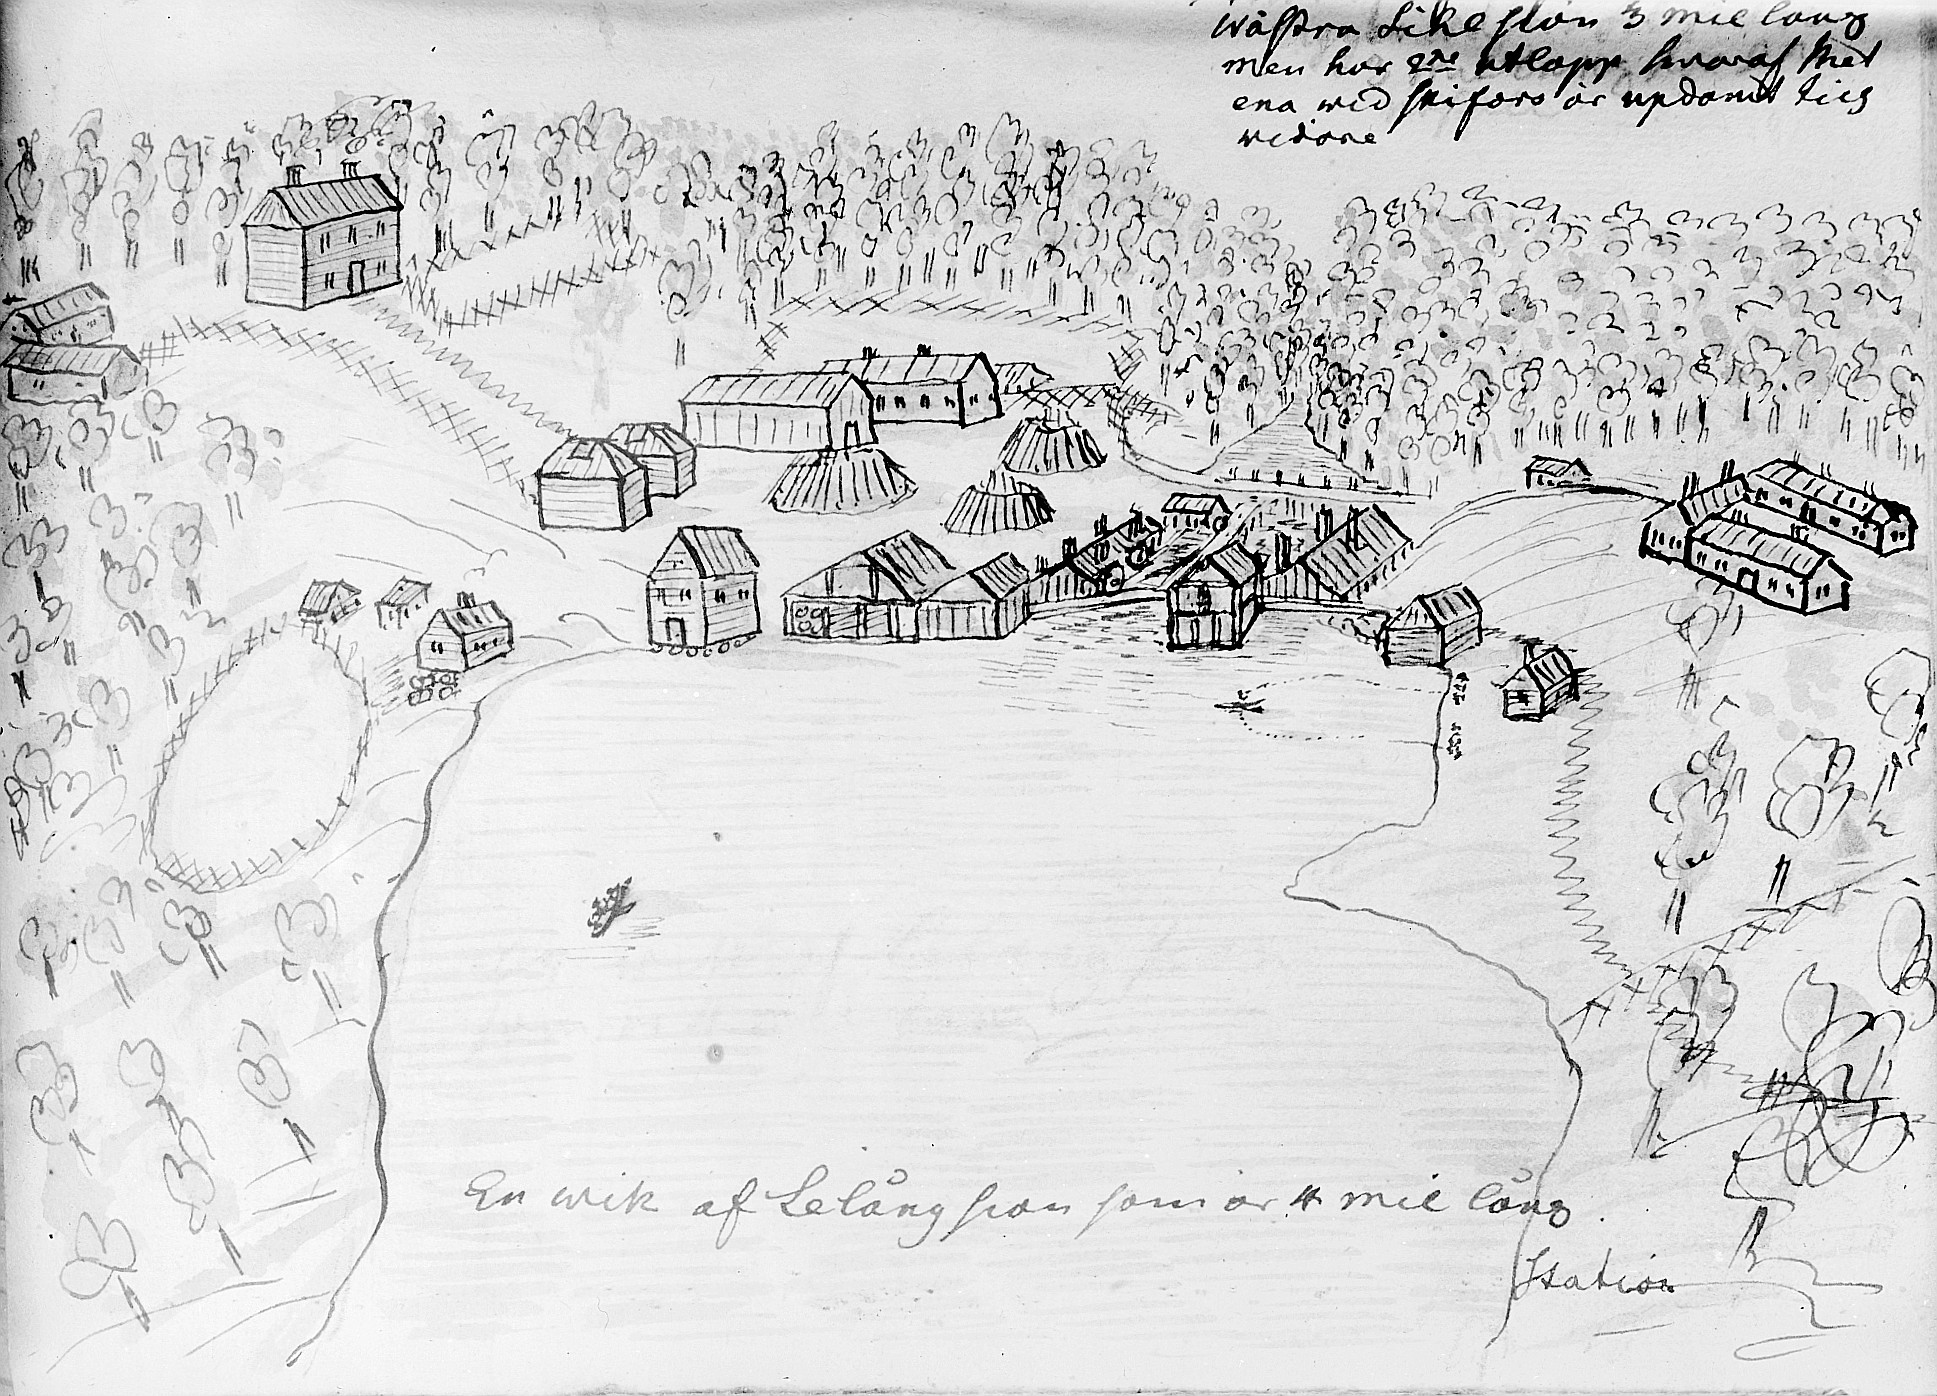 Wästra Silesiön 3 mil lång
men har 2ne utlopp hwaraf thet
ena wid skifors är updämt tils
vidare
En wik af Lelång siön som är 4 mil lång.
Station